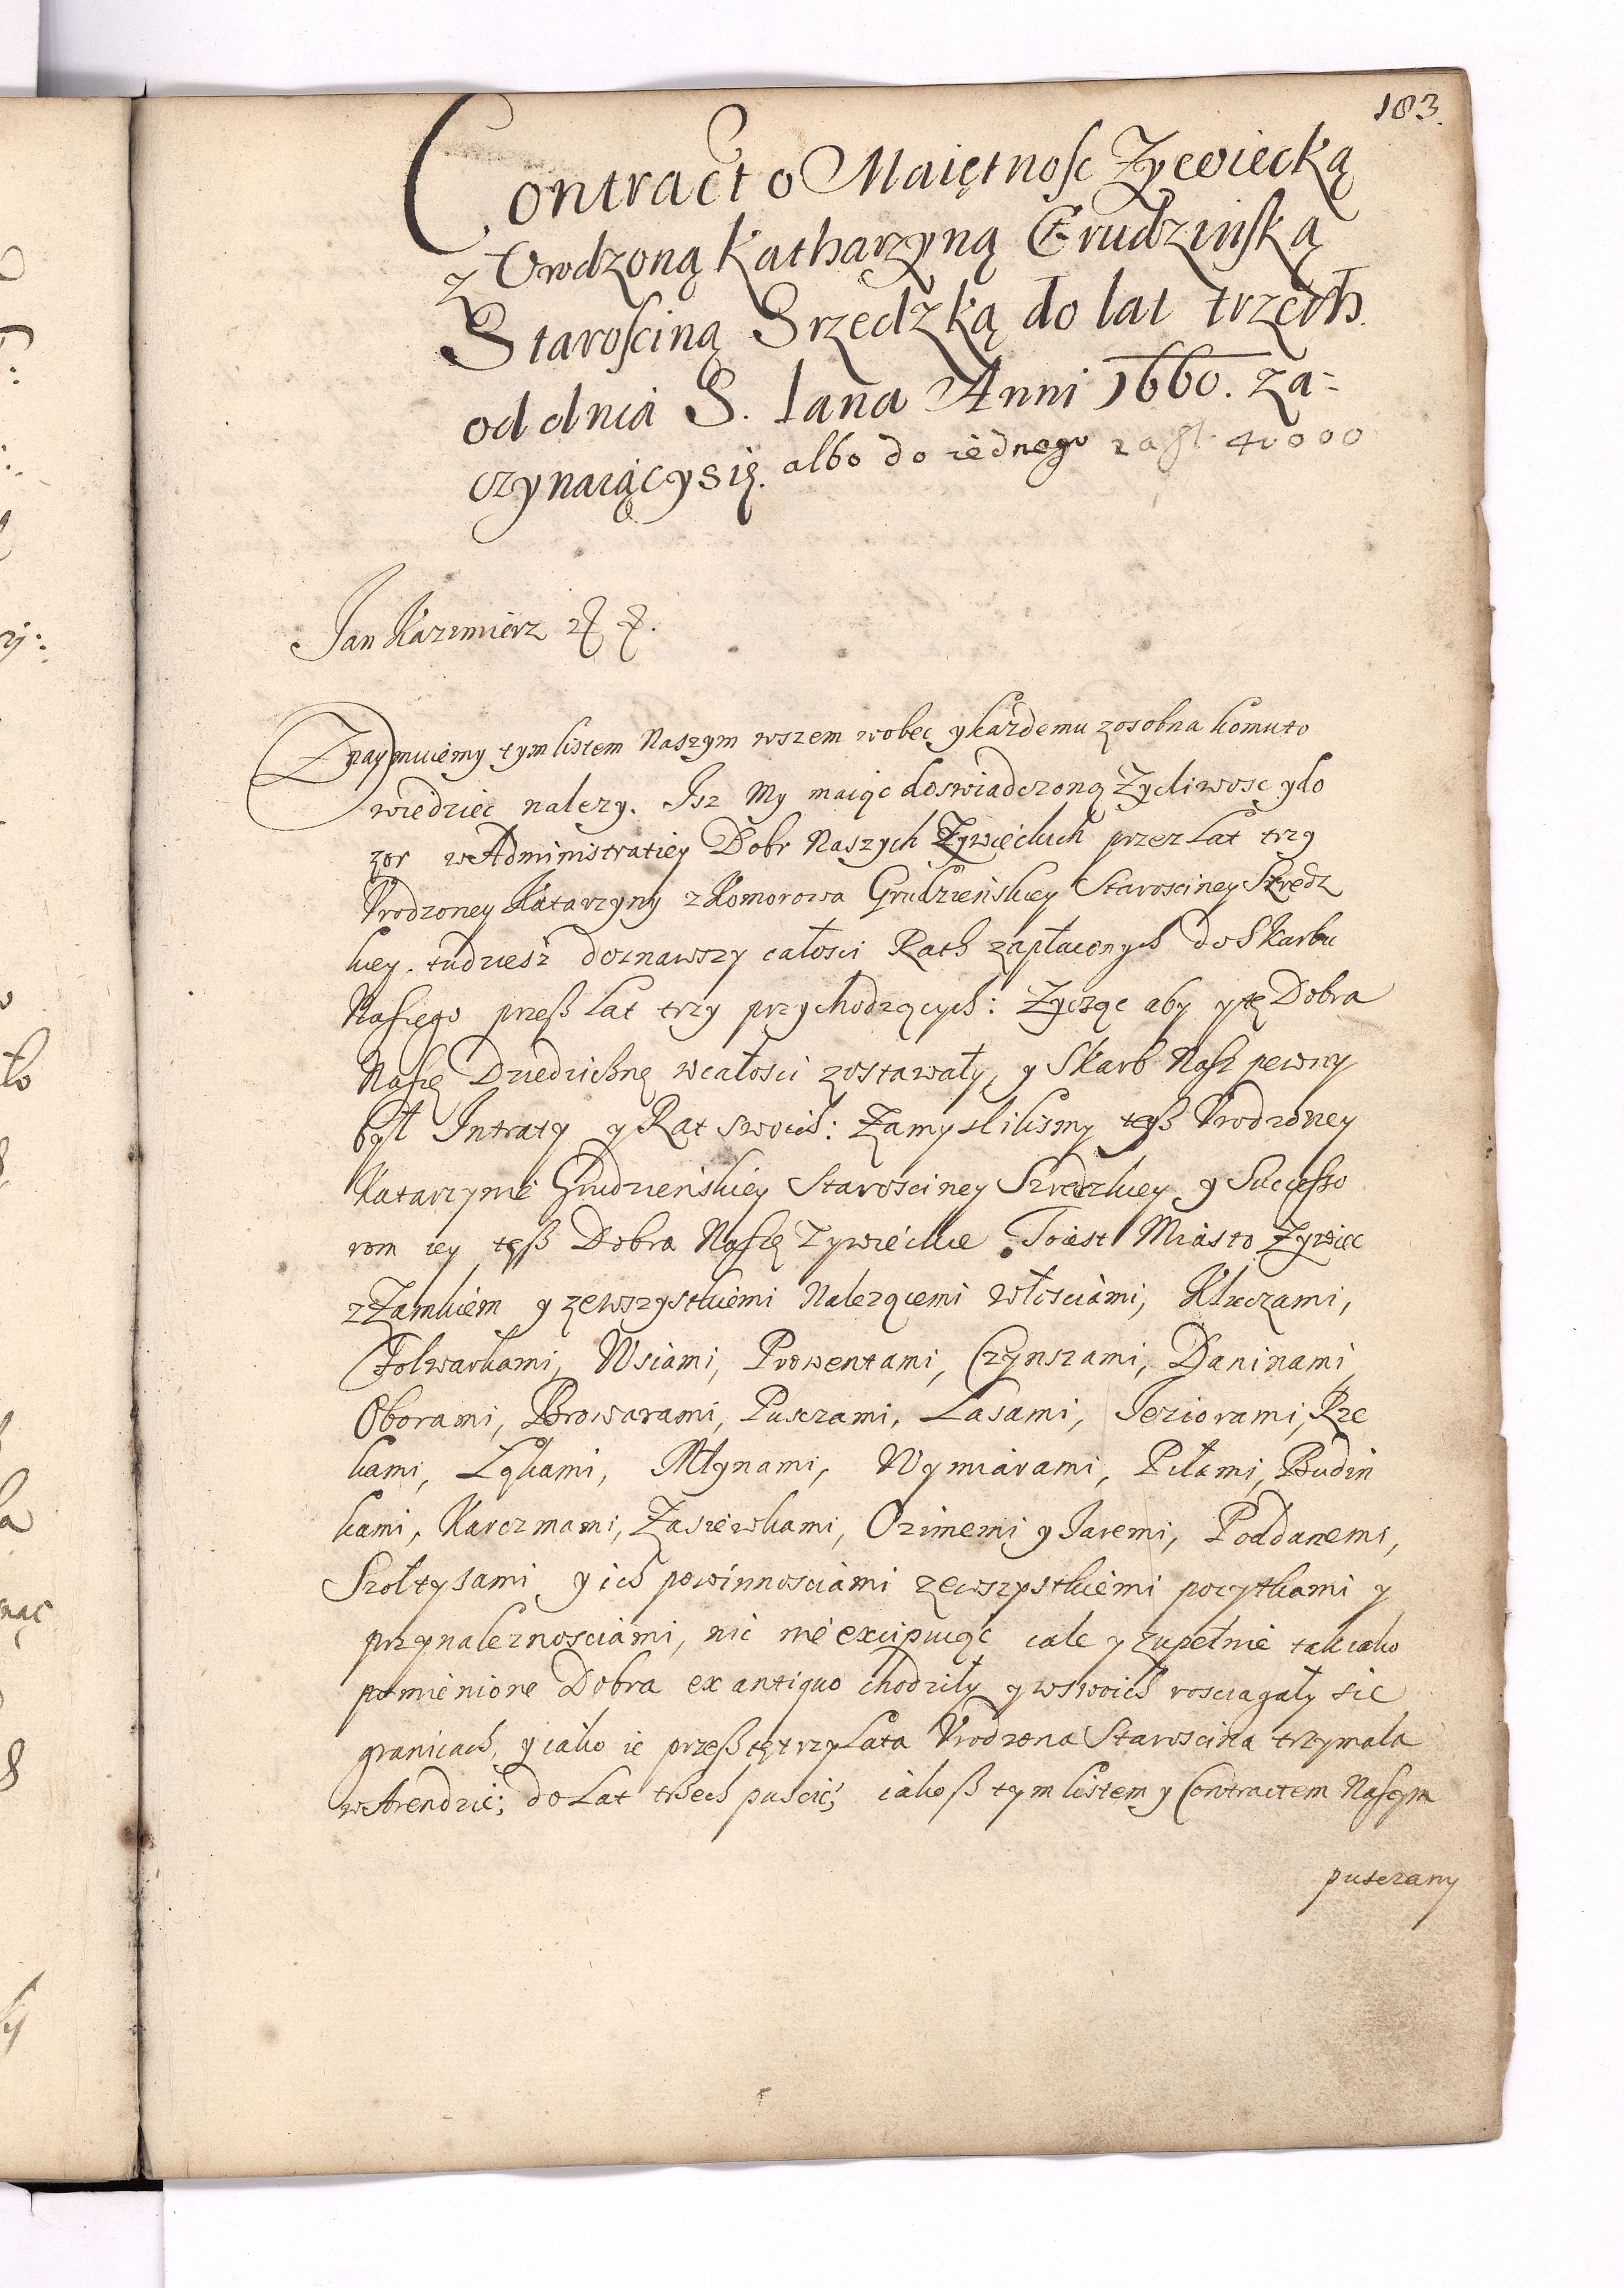 183.
Contract o Maiętnosc Zywiecką
z Urodzoną Katharzyną Grudzinską
Starosciną Srzedzką do lat trzech
od dnia S. Iana Anni 1660. za=
czynaiącysię. albo do iednego za fl. 40000
Jan Kazimierz
Znaymuiemy tym listem Naszym wszem wobec y każdemu zosobna komu to
wiedziec nalezy. Isz My maiąc doswiadczoną Życliwosc y do
zor w Administratiey Dobr Naszych Zywieckich przez Lat trzy
Urodzoney Katarzyny z Komorowa Grudzieńskiey Starosciney Szredz
kiey. tudziesz doznawszy całosci Rath zapłaconych do Skarbu
Naszego przeß Lat trzy przychodzących: Zycząc aby y tę Dobra
Naszę Dziedzicznę w całosci zostawały, y Skarb Nasz pewny
był Intraty y Rat swoich: Zamyslilismy teyß Urodzoney
Katarzynie Grudzieńskiey Starosciney Szredzkiey y Successo
rom iey tęß Dobra Naszę Zywieckie To iest Miasto Żywiec
z Zamkiem y zewszystkiemi Nalezącemi włosciami, Kluczami,
Folwarkami, Wsiami, Prowentami, Czynszami, Daninami,
Oborami, Browarami, Pusczami, Lasami, Ieziorami, Rze
kami, Łąkami, Młynami, Wymiarami, Piłami, Budin
kami, Karczmami, Zasiewkami, Ozimemi y Iaremi, Poddanemi,
Szołtysami y ich powinnosciami zewszystkiemi pozytkami y
przynaleznosciami, nic nie excipuiąc cale y zupełnie tak iako
pomienione Dobra ex antiquo chodziły y w swoich rosciagały sie
granicach, y iako ie przeß tę trzy Lata Urodzona Starościna trzymała
w Arendzie; do Lat trzech puscić; iakoß tym listem y Contractem Naszym
pusczamy